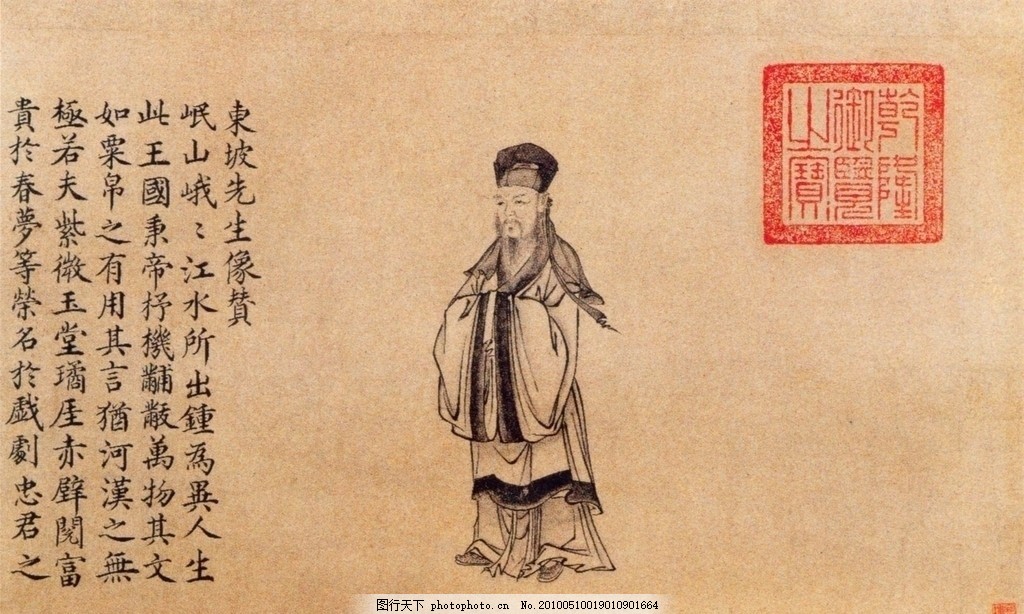 乾隆
御覽
之寶
東坡先生像贊
岷山峨〻江水所出鍾為異人生
此王國秉帝杼機黼黻萬物其文
如粟帛之有用其言猶河漢之無
極若夫紫微玉堂瓊厓赤壁閱富
貴於春夢等榮名於戲劇忠君之
图行天下 photophoto.cn No.20100510019010901664